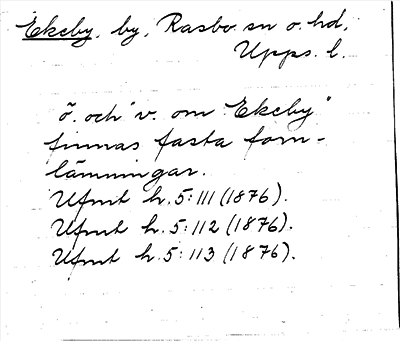 Ekeby, by, Rasbo sn o. hd,
Upps. l.
ö. och v. om "Ekeby"
finnas fasta forn-
lämningar.
Ufmt h. 5:111 (1876).
Ufmt h. 5:112 (1876).
Ufmt h. 5:113 (1876).